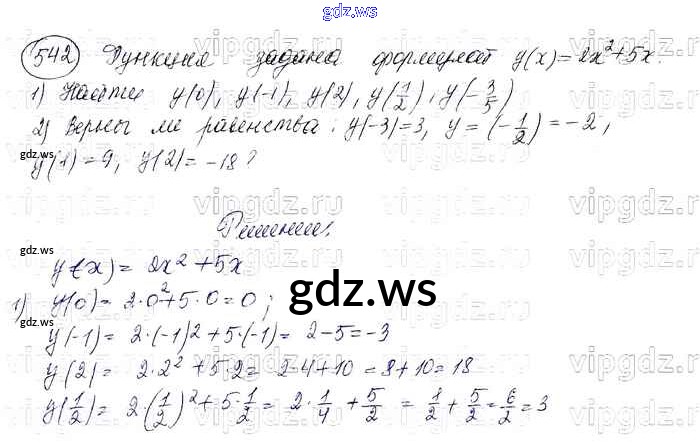 gdz.ws
542 Функция задана формулой y(x)=2x²+5x.
1) Найти y(0), y(-1), y(2), y(1/2), y(-3/5)
2) Верны ли равенства: y(-3)=3, y=(-1/2)=-2,
y(1)=9, y(2)=-18?
Решение.
gdz.ws
y(x)=2x²+5x
1) y(0)=2·0²+5·0=0;
gdz.ws
y(-1)=2·(-1)2+5·(-1)=2-5=-3
y(2)=2·2²+5·2=2·4+10=8+10=18
y(1/2)=2(1/2)²+5·1/2=2·1/4+5/2=1/2+5/2=6/2=3
gdz.ws
gdz.ws
vipgdz.ru
vipgdz.ru
vipgdz.ru
vipgdz.ru